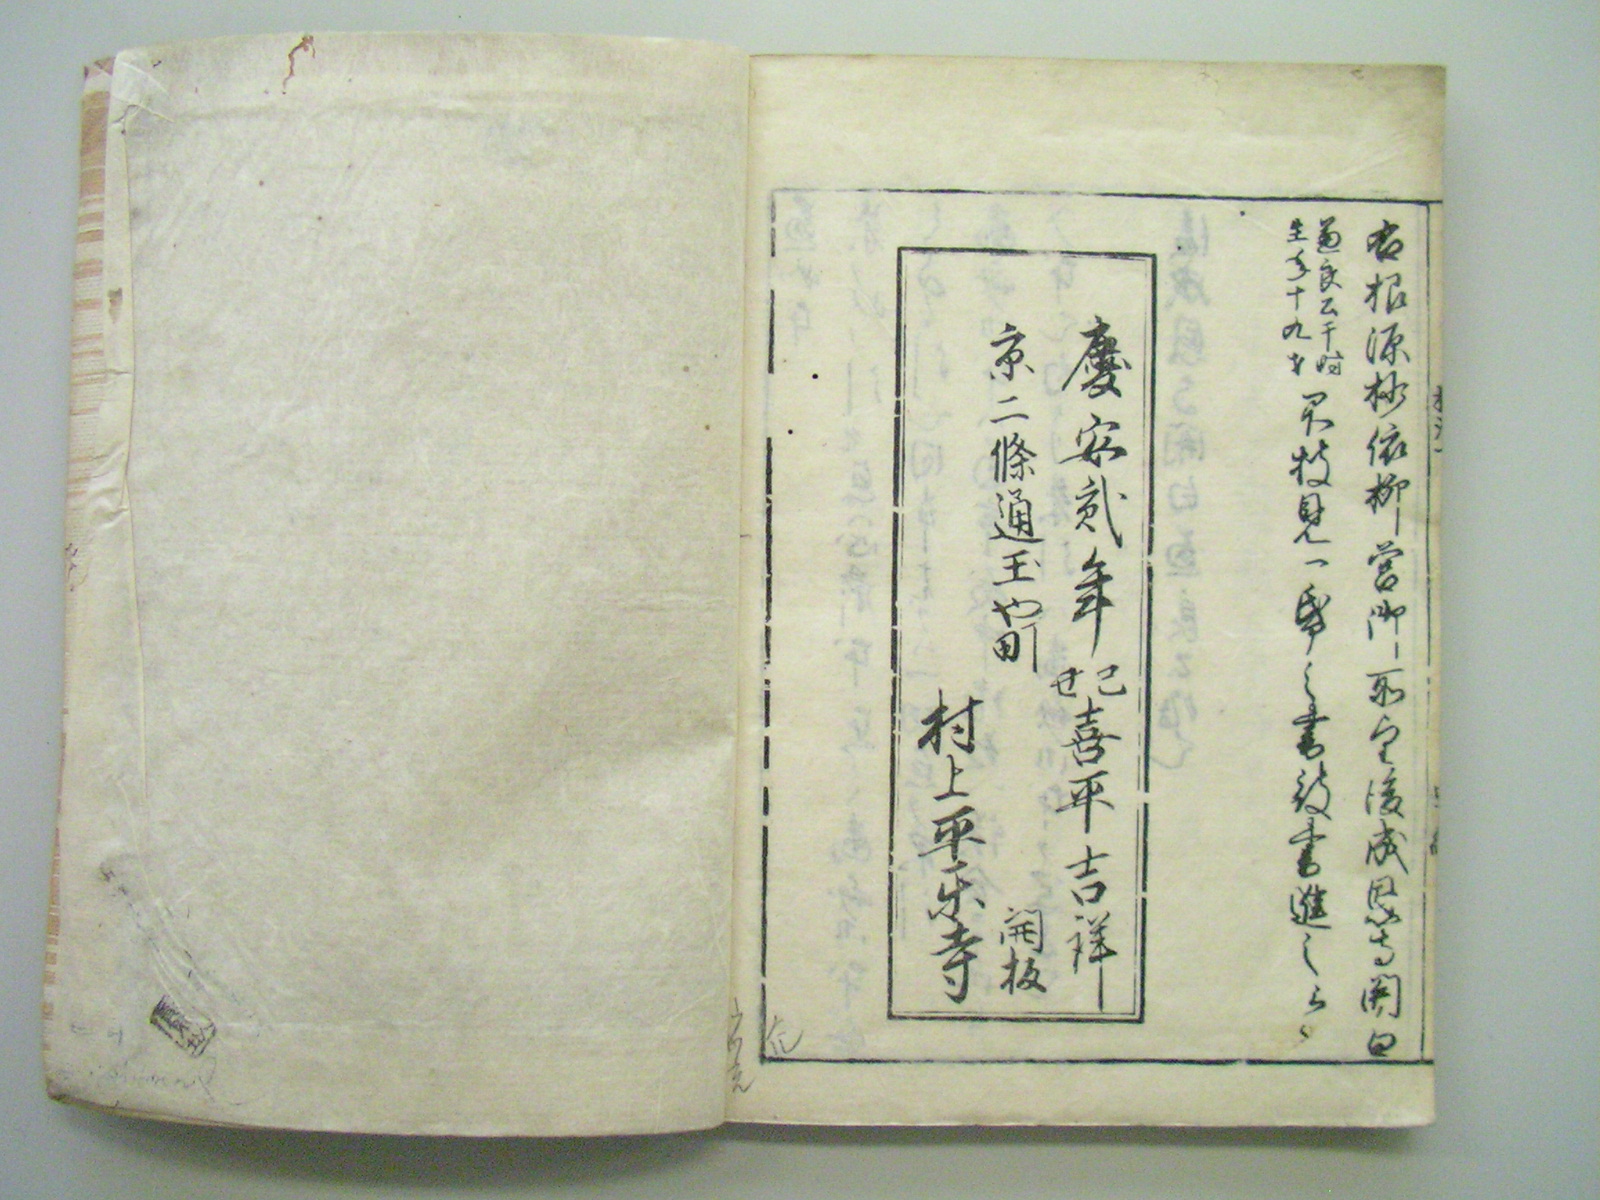 右根源抄依柳営御所望後成恩寺関白
兼良公于時
生年十九才
不披見一帋之書被書進之云々
慶安貳年
己
丑
喜平吉祥
京二條通玉や町
村上平樂寺
開板